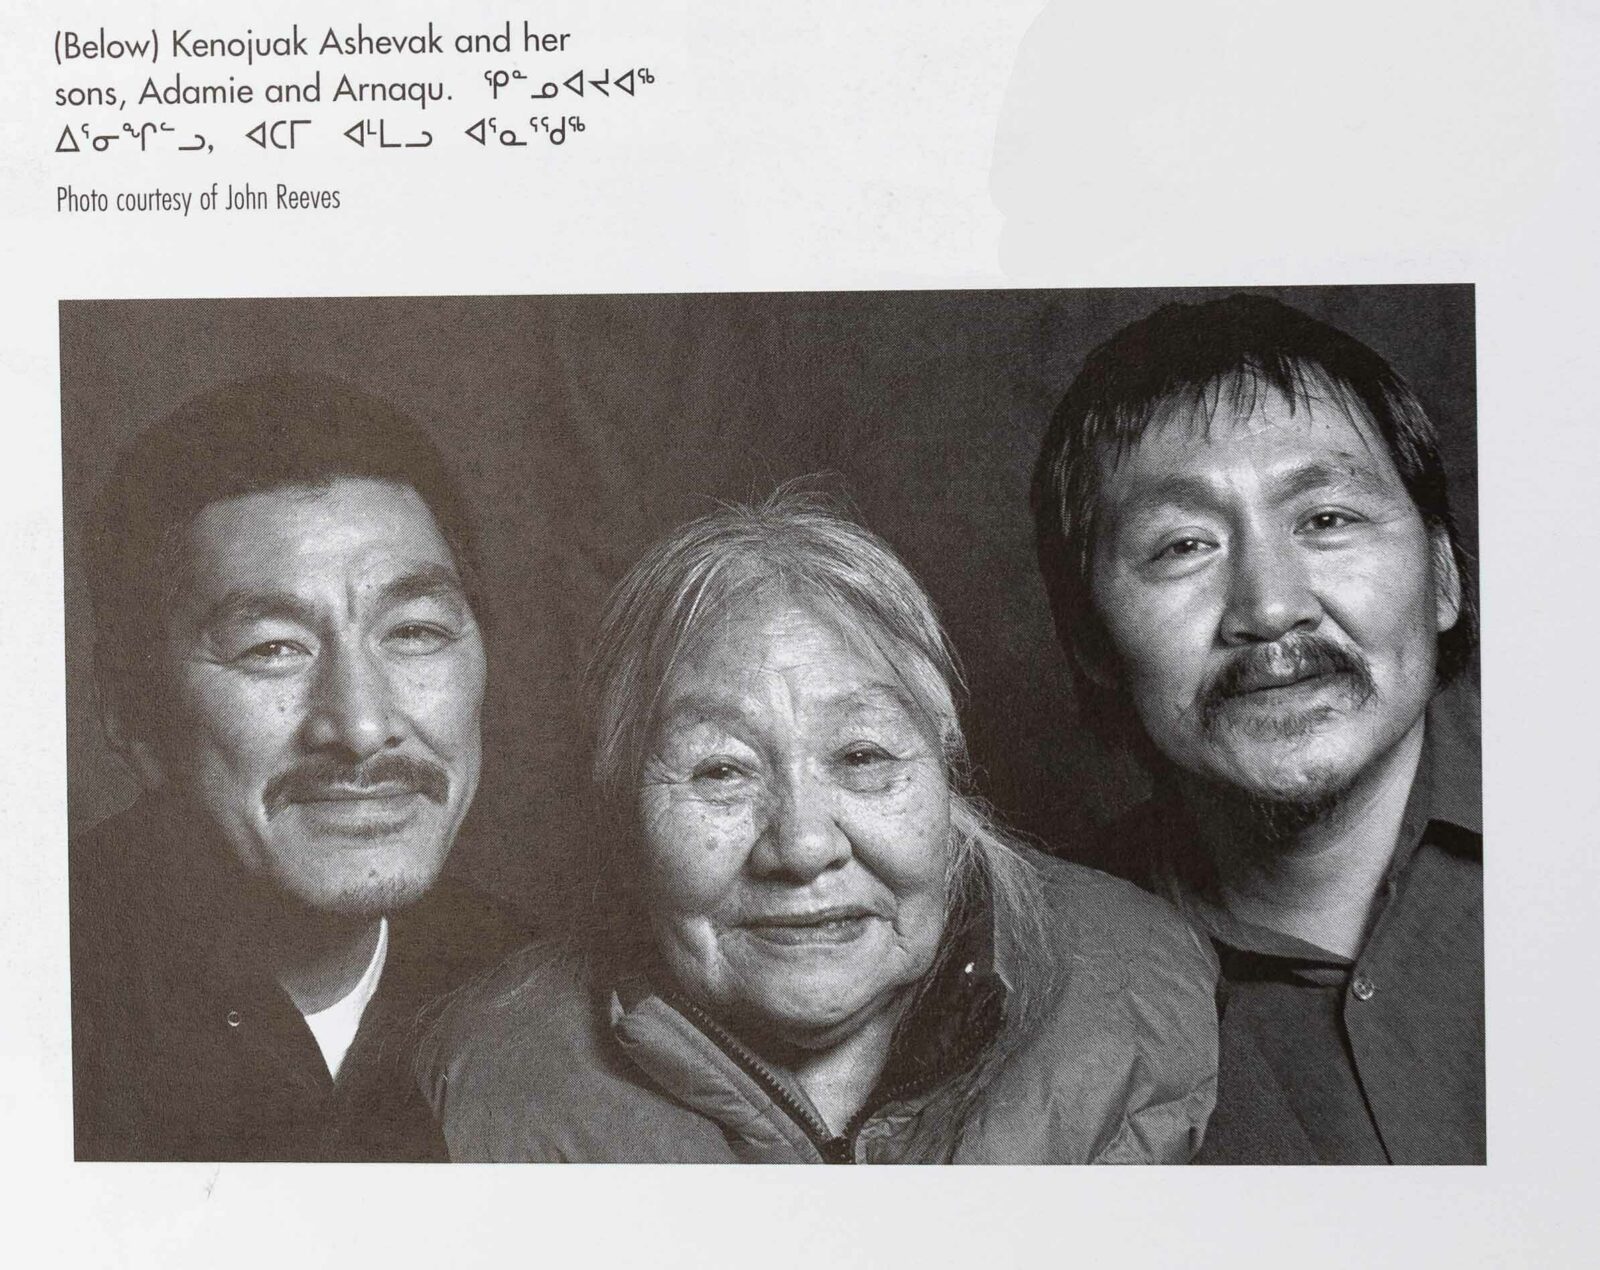 (Below) Kenojuak Ashevak and her
sons, Adamie and Arnaqu. ᕿᓐᓄᐊᔪᐊᖅ
ᐃᕐᓂᖏᓪᓗ, ᐊᑕᒥ ᐊᒻᒪᓗ ᐊᕐᓇᕐᖁᖅ
Photo courtesy of John Reeves